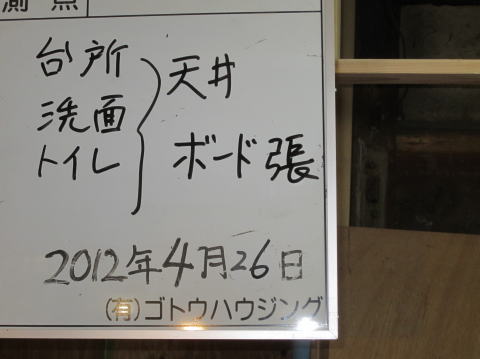 測点
台所
洗面
トイレ
天井
ボード張
2012年4月26日
(有)ゴトウハウジング